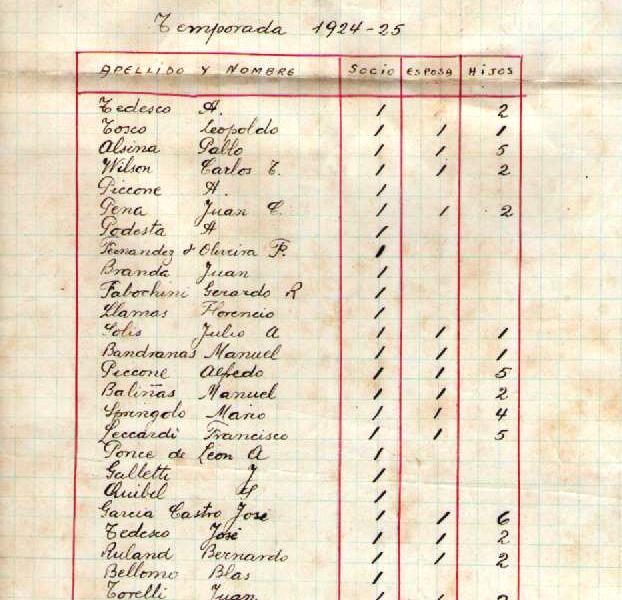 Temporada 1924-25
APELLIDO Y NOMBRE SOCIO ESPOSA HIJOS
Tedesco A. 1 2
Tosco Leopoldo 1 1 1
Alsina Pablo 1 1 5
Wilson Carlos T. 1 1 2
Piccone A. 1
Pena Juan C. 1 1 2
Podesta A 1
Fernandez d Oliveira F. 1
Branda Juan 1
Fabochini Gerardo R 1
Llamas Florencio 1
Solis Julio A 1 1 1
Bandranas Manuel 1 1 1
Piccone Alfredo 1 1 5
Baliñas Manuel 1 1 2
Springolo Mario 1 1 4
Leccardi Francisco 1 1 5
Ponce de Leon A 1
Galletti J 1
Quibel 1
Garcia Castro José 1 1 6
Tedesco José 1 1 2
Ruland Bernardo 1 1 2
Bellomo Blas 1
Torelli Juan 1 1 2